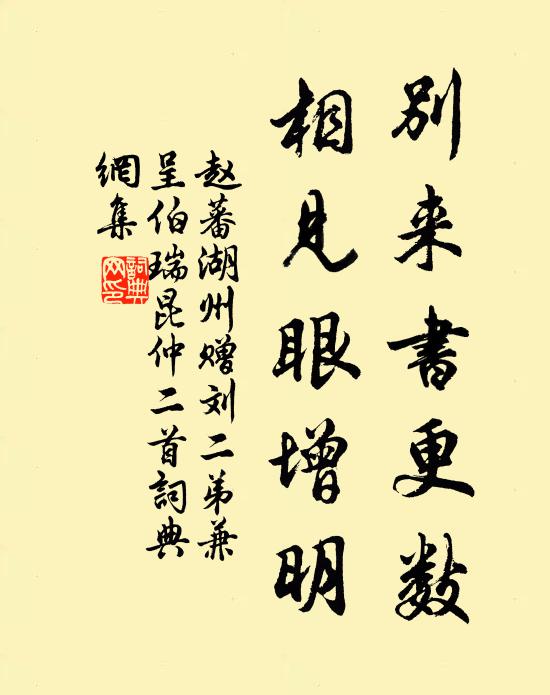 别来書更数
相見眼增明
赵蕃湖州赠刘二弟兼
呈伯瑞昆仲二首詞典
網集
詞典
网印